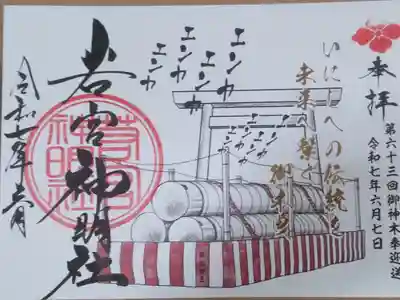 奉拝
第六十三回御神木奉迎送
令和七年六月七日
いにしへの伝統を
未来へ繋ぐ
御神木
エンヤ
エンヤ
エンヤ
エンヤ
エンヤ
若宮神明社
若宮
神明社
令和七年六月